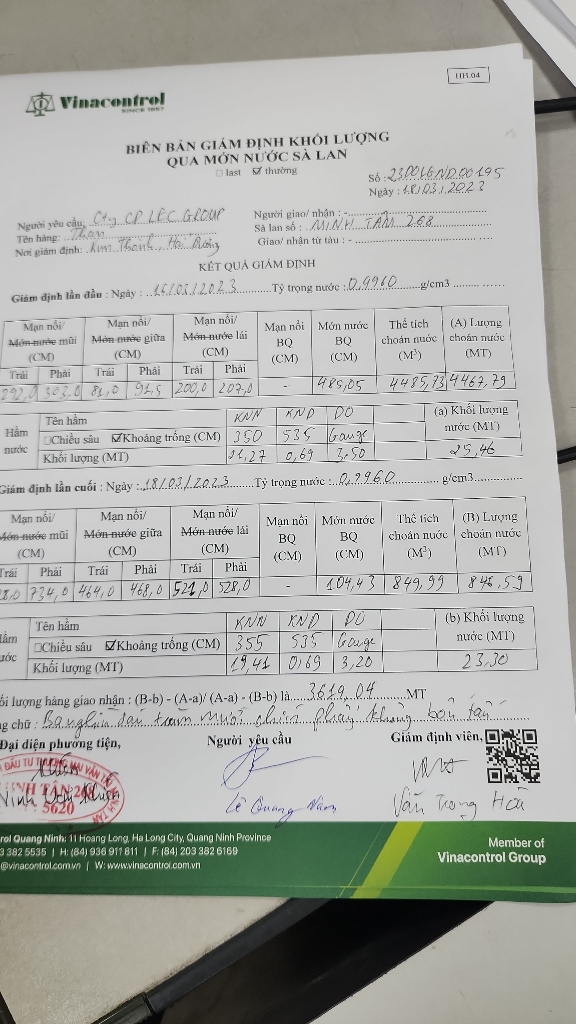 HH.04
Vinacontrol
SINCE 1957
BIÊN BẢN GIÁM ĐỊNH KHỐI LƯỢNG
QUA MỚN NƯỚC SÀ LAN
☐ last ☑ thường
Số : 23D01GND00195
Ngày : 18/03/2023
Người yêu cầu: Cty CP LEC GROUP
Tên hàng: Than
Nơi giám định: Kim Thành, Hải Dương
Người giao/ nhận : -
Sà lan số : MINH TÂN 268
Giao/ nhận từ tàu : -
KẾT QUẢ GIÁM ĐỊNH
Giám định lần đầu : Ngày : 16/03/2023 Tỷ trọng nước : 0,9960 g/cm3
Mạn nổi/ Mớn nước mũi (CM) Mạn nổi/ Mớn nước giữa (CM) Mạn nổi/ Mớn nước lái (CM) Mạn nổi BQ (CM) Mớn nước BQ (CM) Thể tích choán nước (M³) (A) Lượng choán nước (MT)
Trái Phải Trái Phải Trái Phải
292,0 303,0 81,0 91,5 200,0 207,0 - 485,05 4485,73 4467,79
Hầm nước
Tên hầm KNN KND DO (a) Khối lượng nước (MT)
☐Chiều sâu ☑Khoảng trống (CM) 350 535 Gauge
Khối lượng (MT) 21,27 0,69 3,50 25,46
Giám định lần cuối : Ngày : 18/03/2023 Tỷ trọng nước : 0,9960 g/cm3
Mạn nổi/ Mớn nước mũi (CM) Mạn nổi/ Mớn nước giữa (CM) Mạn nổi/ Mớn nước lái (CM) Mạn nổi BQ (CM) Mớn nước BQ (CM) Thể tích choán nước (M³) (B) Lượng choán nước (MT)
Trái Phải Trái Phải Trái Phải
734,0 464,0 468,0 521,0 528,0 - 104,43 849,99 846,59
Tên hầm KNN KND DO (b) Khối lượng nước (MT)
☐Chiều sâu ☑Khoảng trống (CM) 355 535 Gauge
Khối lượng (MT) 19,41 0,69 3,20 23,30
lượng hàng giao nhận : (B-b) - (A-a)/ (A-a) - (B-b) là 3619,04 MT
chữ : Ba nghìn sáu trăm mười chín phẩy không bốn tấn
Đại diện phương tiện, Người yêu cầu Giám định viên,
5620
Lê Quang Năm
Văn Trọng Hoà
rol Quang Ninh: 11 Hoang Long, Ha Long City, Quang Ninh Province
3 382 5535 | H: (84) 936 911 811 | F: (84) 203 382 6169
@vinacontrol.com.vn | W: www.vinacontrol.com.vn
Member of
Vinacontrol Group